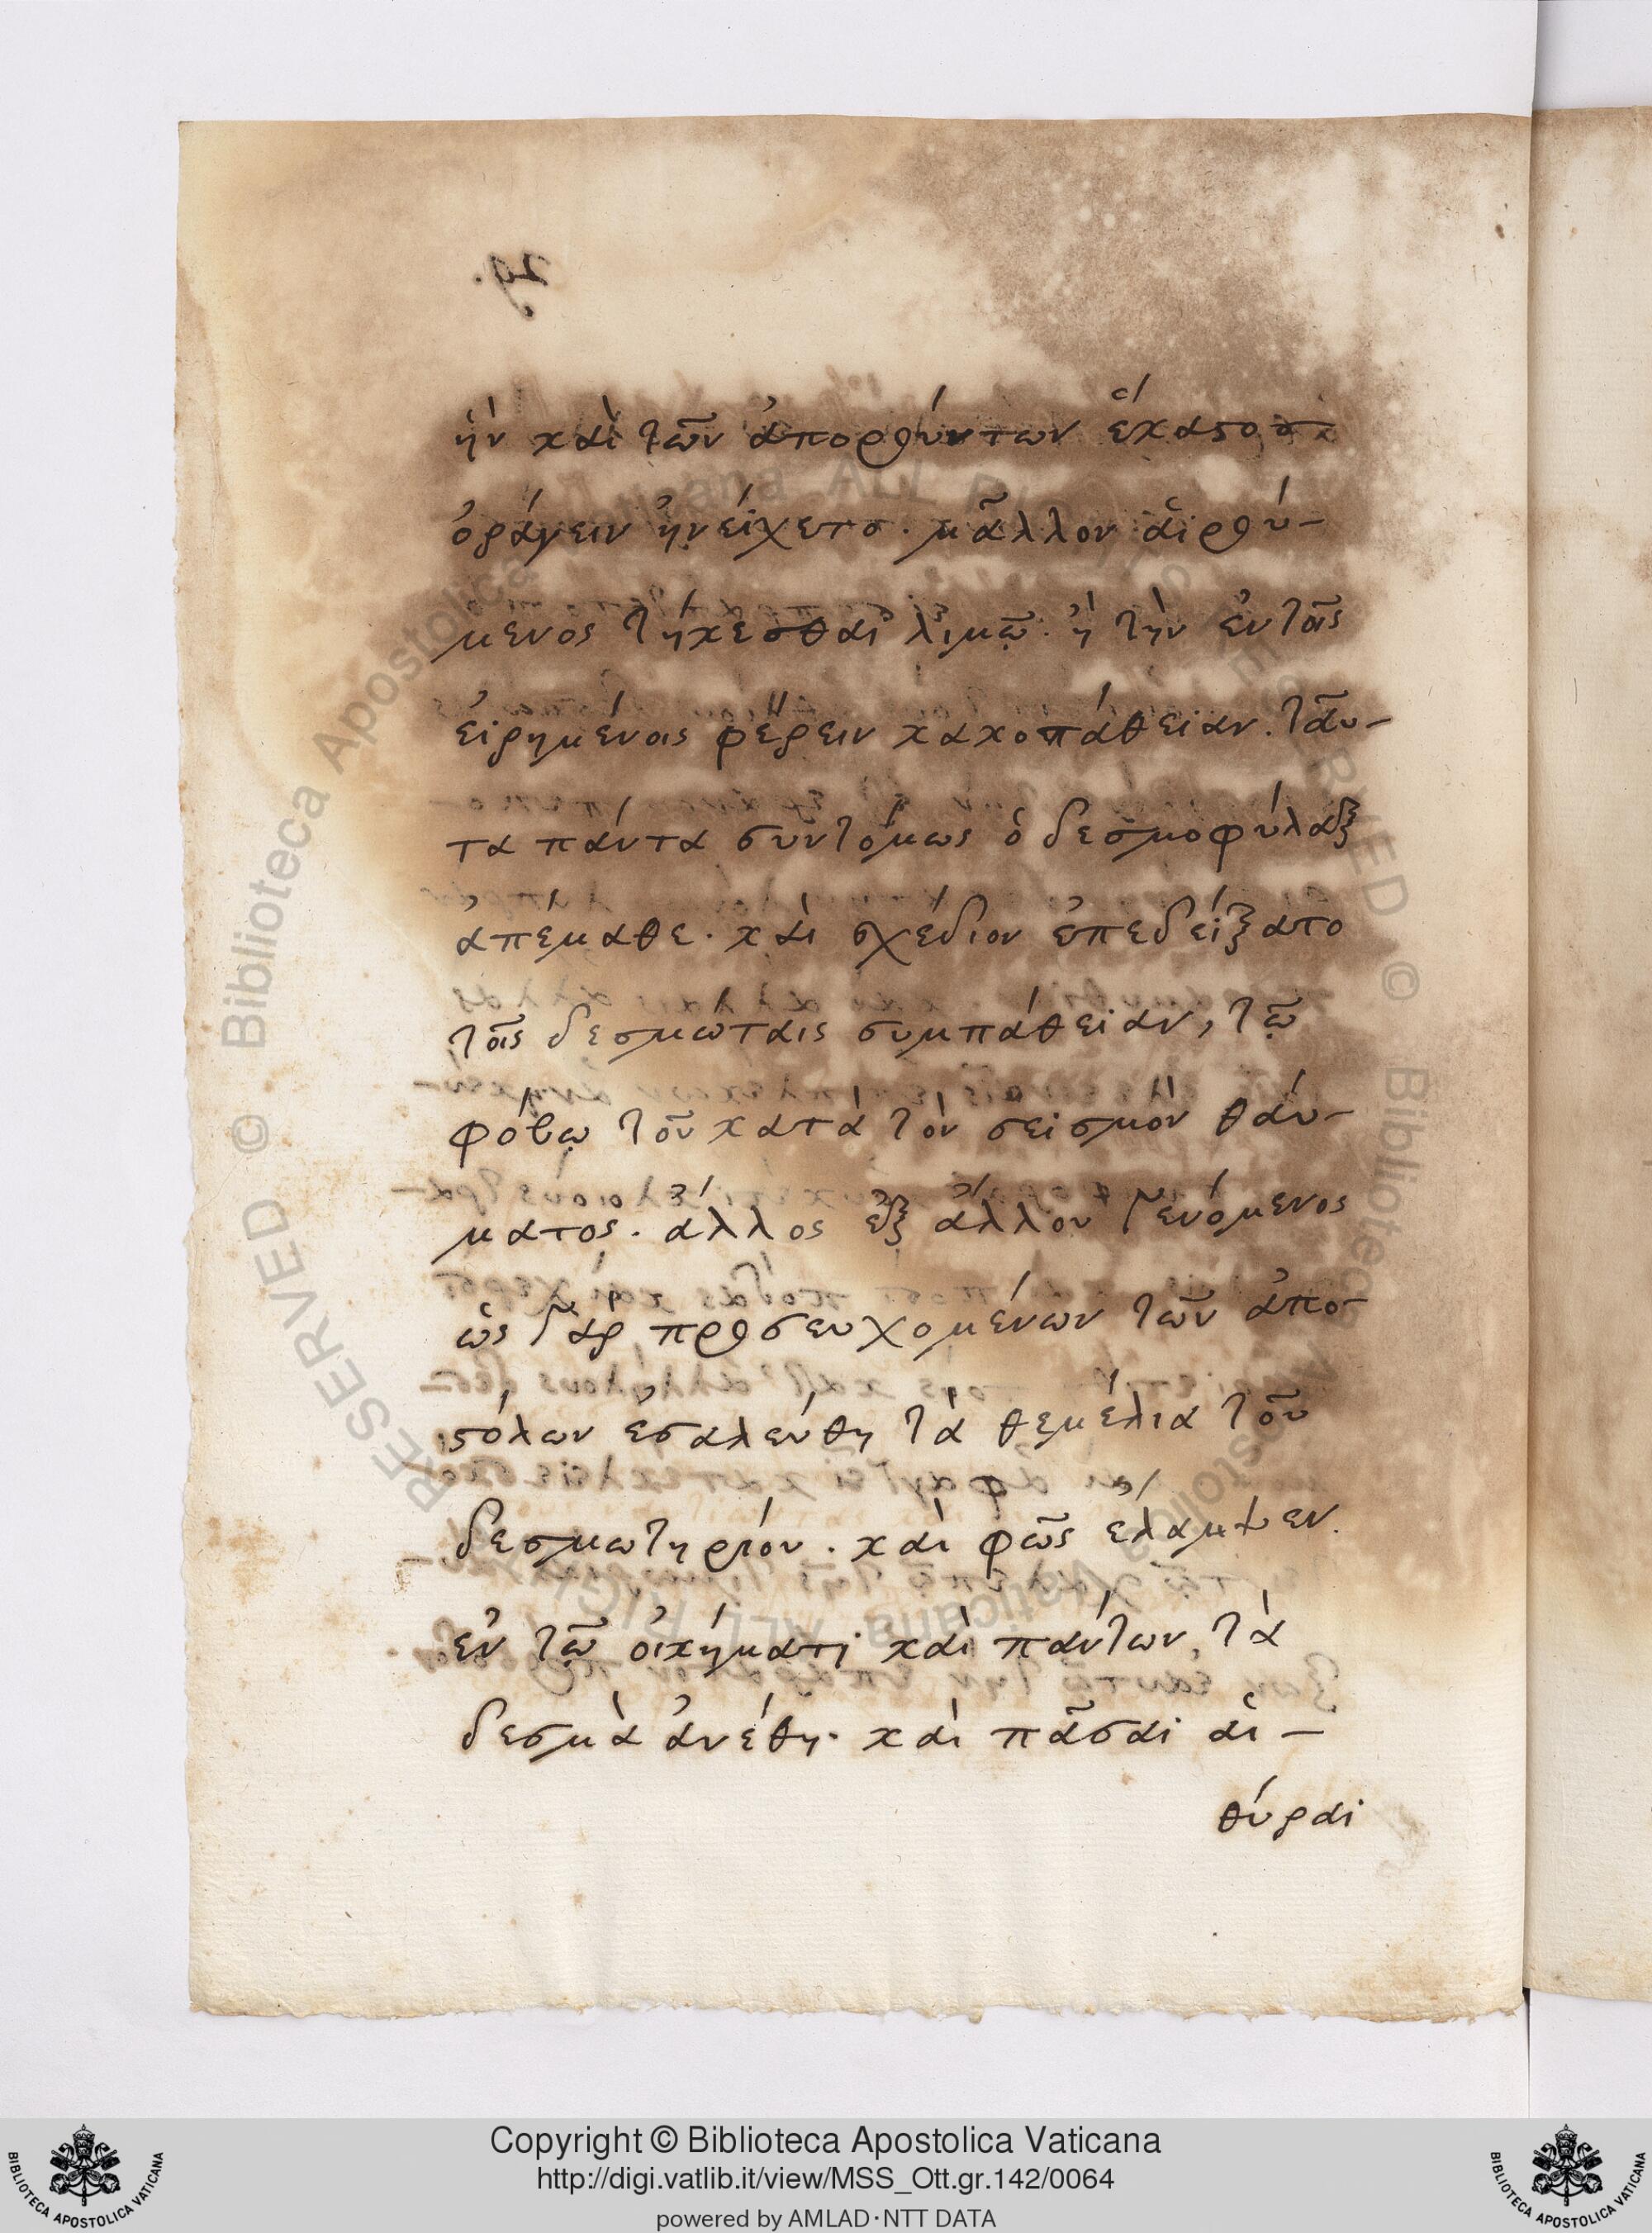 29.
ἦν καὶ τῶν ἀπορούντων ἕκαστο
ὀράγειν ἠνείχετο. μᾶλλον αἱρού-
μενος τήκεσθαι λιμῷ. ἢ τὴν ἐν τοῖς
εἰρημένοις φέρειν κακοπάθειαν. ταῦ-
τα πάντα συντόμως ὁ δεσμοφύλαξ
ἀπέμαθε. καὶ σχέδιον ἐπεδείξατο
τοῖς δεσμώταις συμπάθειαν, τῷ
φόβῳ τοῦ κατὰ τὸν σεισμὸν θαύ-
ματος. ἄλλος ἐξ ἄλλου γενόμενος
ὡς γὰρ προσευχομένων τῶν ἀπο-
στόλων ἐσαλεύθη τὰ θεμέλια τοῦ
δεσμωτηρίου. καὶ φῶς ἔλαμψεν.
ἐν τῷ οἰκήματι καὶ πάντων, τὰ
δεσμὰ ἀνέθη. καὶ πᾶσαι αἱ-
θύραι
RESERVED © Biblioteca Apostolica Vaticana ALL RIGHTS RESERVED © Biblioteca Apostolica Vaticana ALL RIGHTS
BIBLIOTECA APOSTOLICA VATICANA
Copyright © Biblioteca Apostolica Vaticana
http://digi.vatlib.it/view/MSS_Ott.gr.142/0064
powered by AMLAD·NTT DATA
BIBLIOTECA APOSTOLICA VATICANA